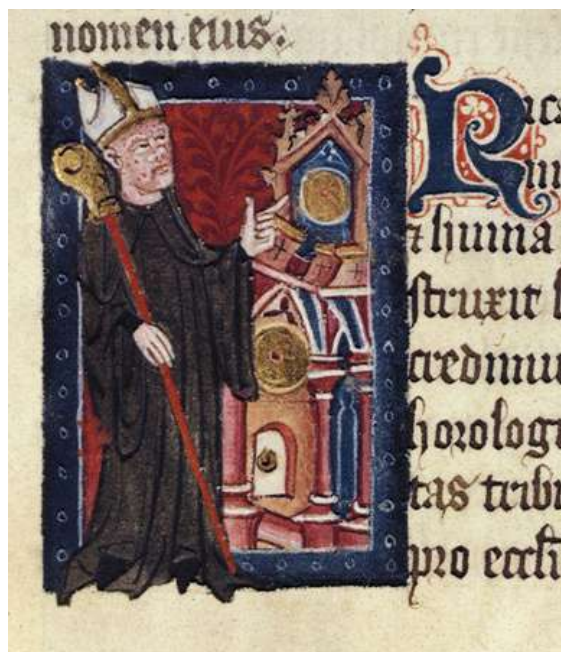 nomen eius.
Rica
⁊ huma
struxit
credimu
horologi
tas tribu
pro eccli